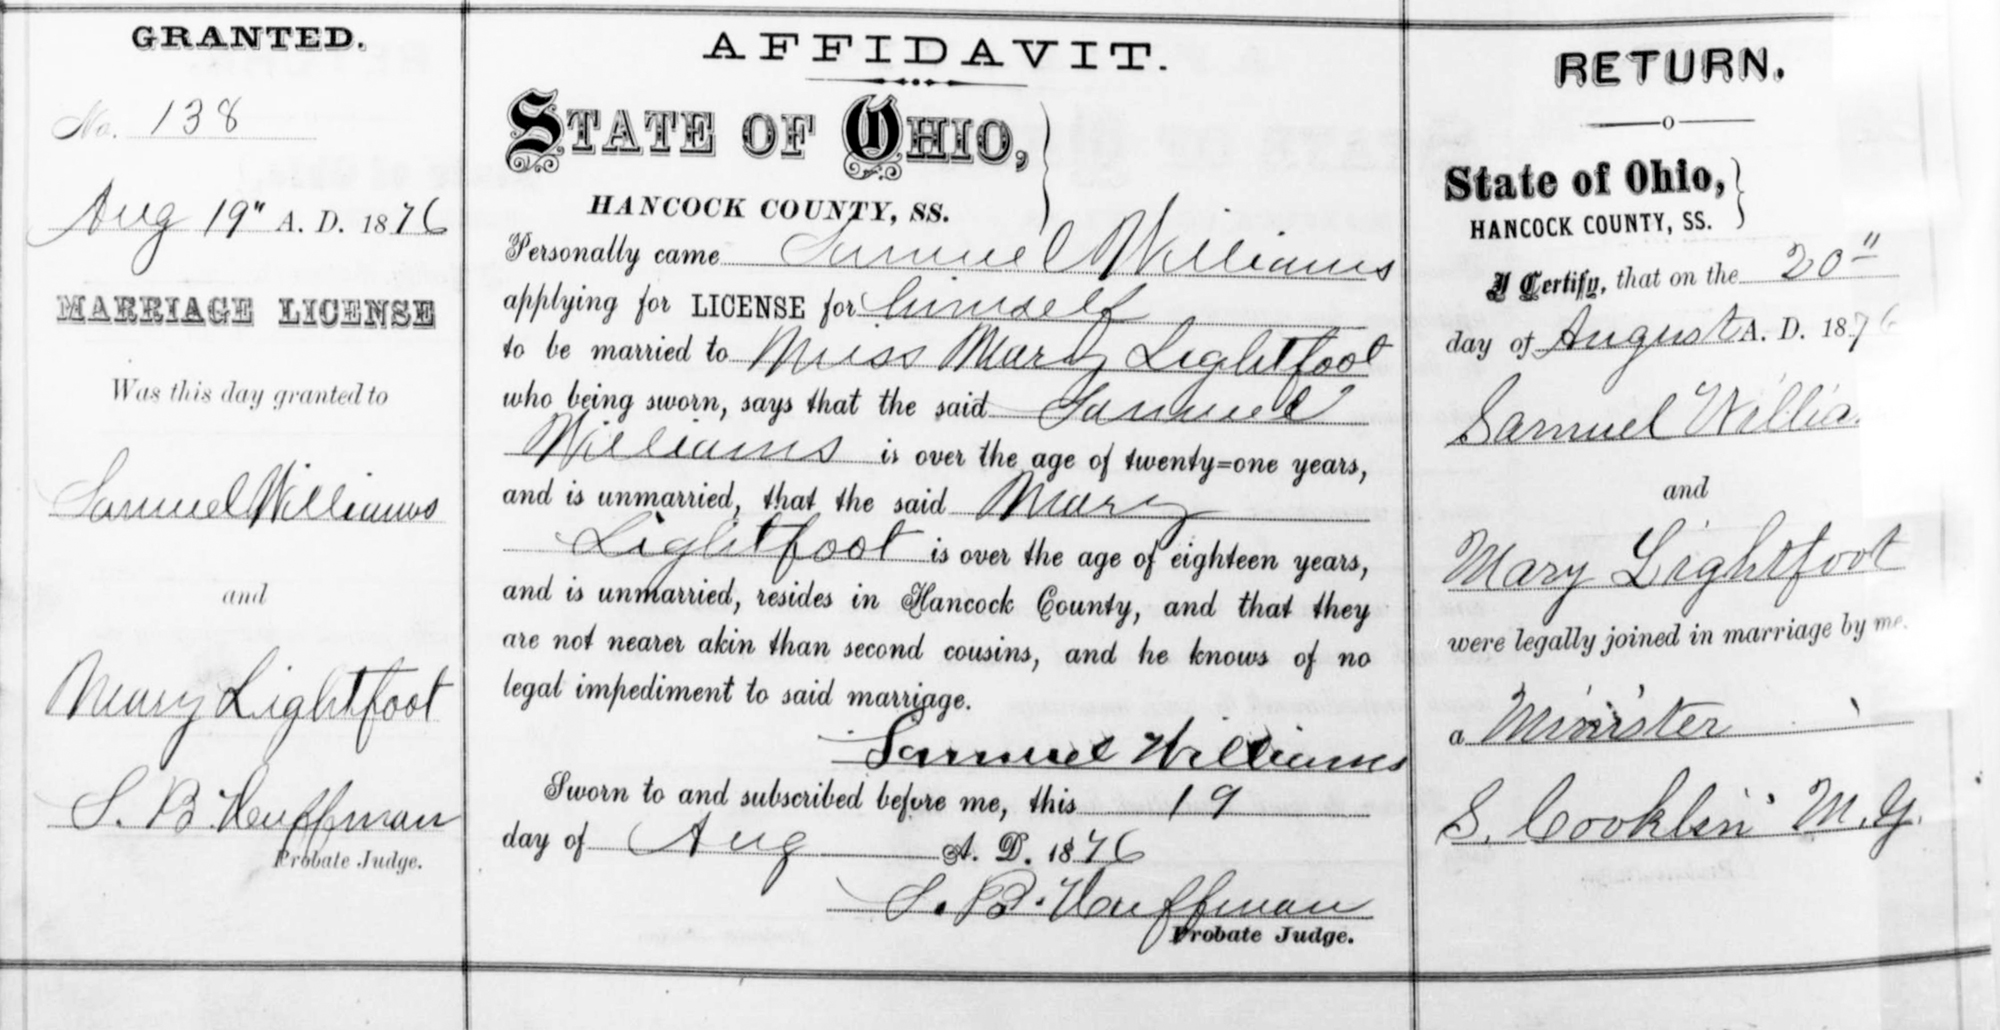 GRANTED.
No. 138
Aug 19" A. D. 1876
MARRIAGE LICENSE
Was this day granted to
Samuel Williams
and
Mary Lightfoot
S. B. Huffman
Probate Judge.
AFFIDAVIT.
STATE OF OHIO,
HANCOCK COUNTY, SS.
Personally came Samuel Williams
applying for LICENSE for himself
to be married to Miss Mary Lightfoot
who being sworn, says that the said Samuel
Williams is over the age of twenty=one years,
and is unmarried, that the said Mary
Lightfoot is over the age of eighteen years,
and is unmarried, resides in Hancock County, and that they
are not nearer akin than second cousins, and he knows of no
legal impediment to said marriage.
Samuel Williams
Sworn to and subscribed before me, this 19
day of Aug A. D. 1876
S. B. Huffman
Probate Judge.
RETURN.
State of Ohio,
HANCOCK COUNTY, SS.
I Certify, that on the 20"
day of August A. D. 1876
Samuel Willia
and
Mary Lightfoot
were legally joined in marriage by me.
a Minister
S. M. G.